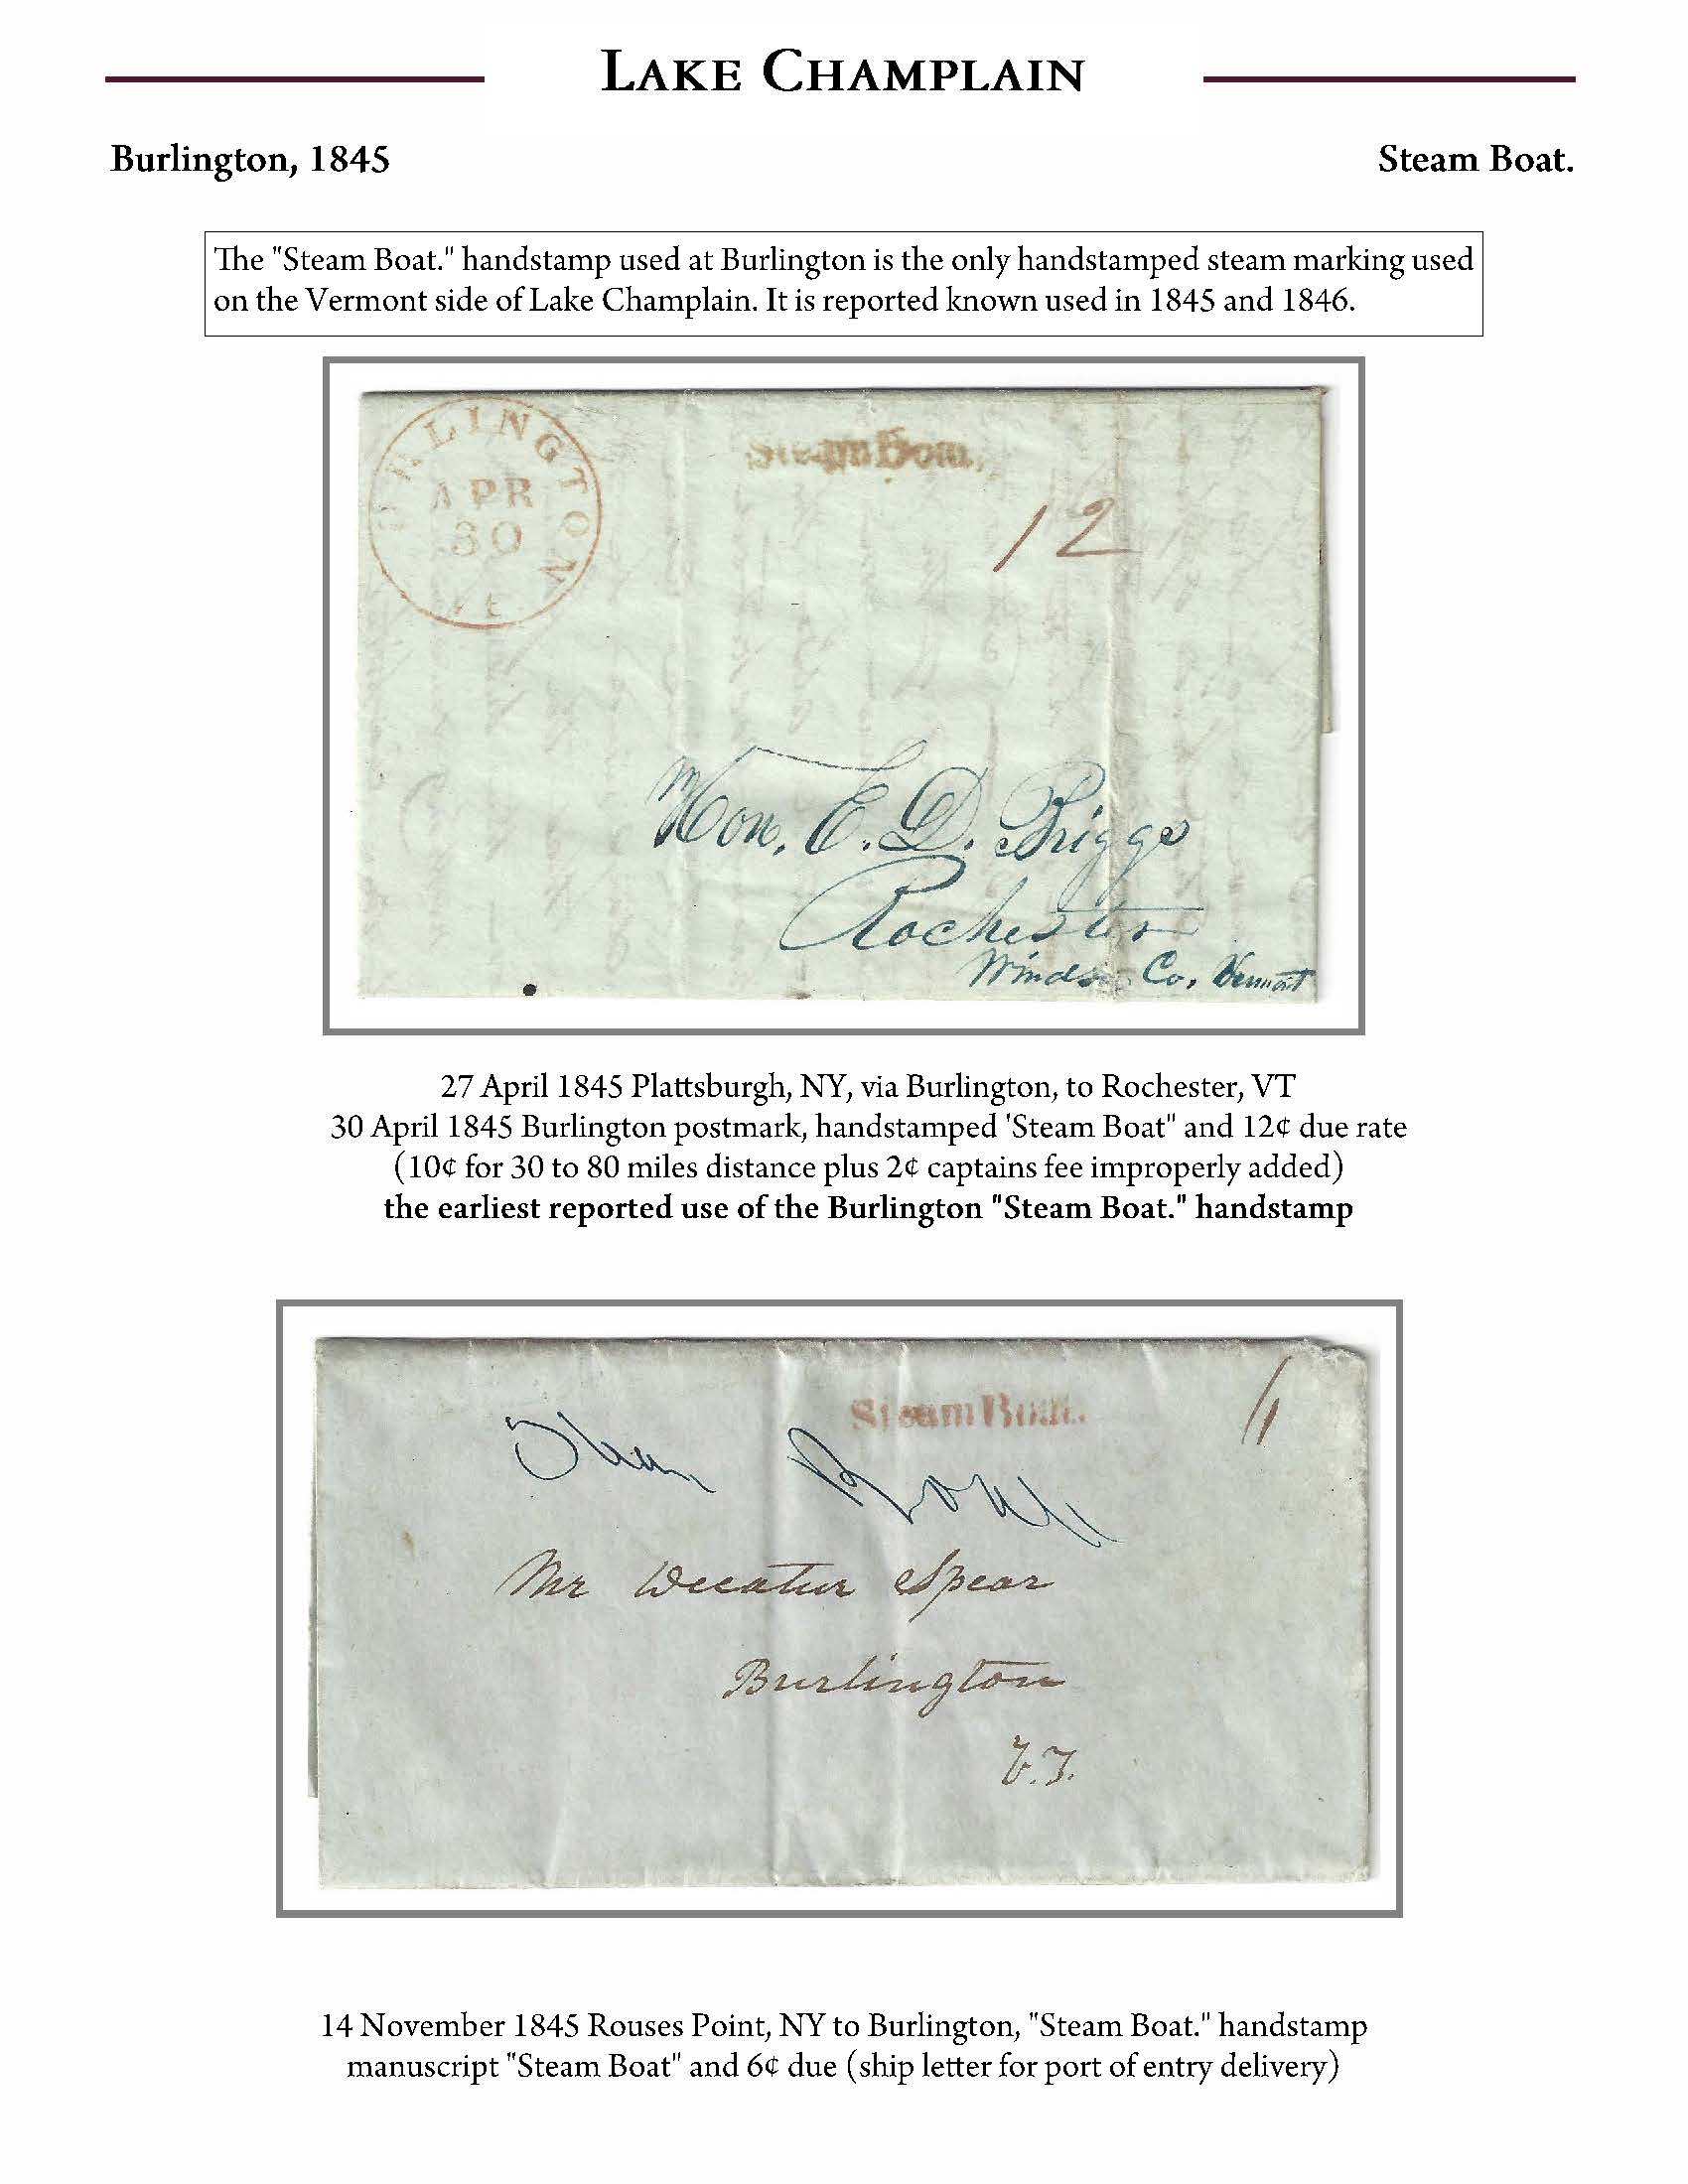 LAKE CHAMPLAIN
Burlington, 1845
Steam Boat.
The "Steam Boat." handstamp used at Burlington is the only handstamped steam marking used
on the Vermont side of Lake Champlain. It is reported known used in 1845 and 1846.
BURLINGTON
APR
30
VT.
Steam Boat.
12
Hon. E. D. Briggs
Rochester
Windsor Co, Vermont
27 April 1845 Plattsburgh, NY, via Burlington, to Rochester, VT
30 April 1845 Burlington postmark, handstamped 'Steam Boat" and 12¢ due rate
(10¢ for 30 to 80 miles distance plus 2¢ captains fee improperly added)
the earliest reported use of the Burlington "Steam Boat." handstamp
Steam Boat.
6
Steam Boat
Mr Decatur Spear
Burlington
V.T.
14 November 1845 Rouses Point, NY to Burlington, "Steam Boat." handstamp
manuscript "Steam Boat" and 6¢ due (ship letter for port of entry delivery)